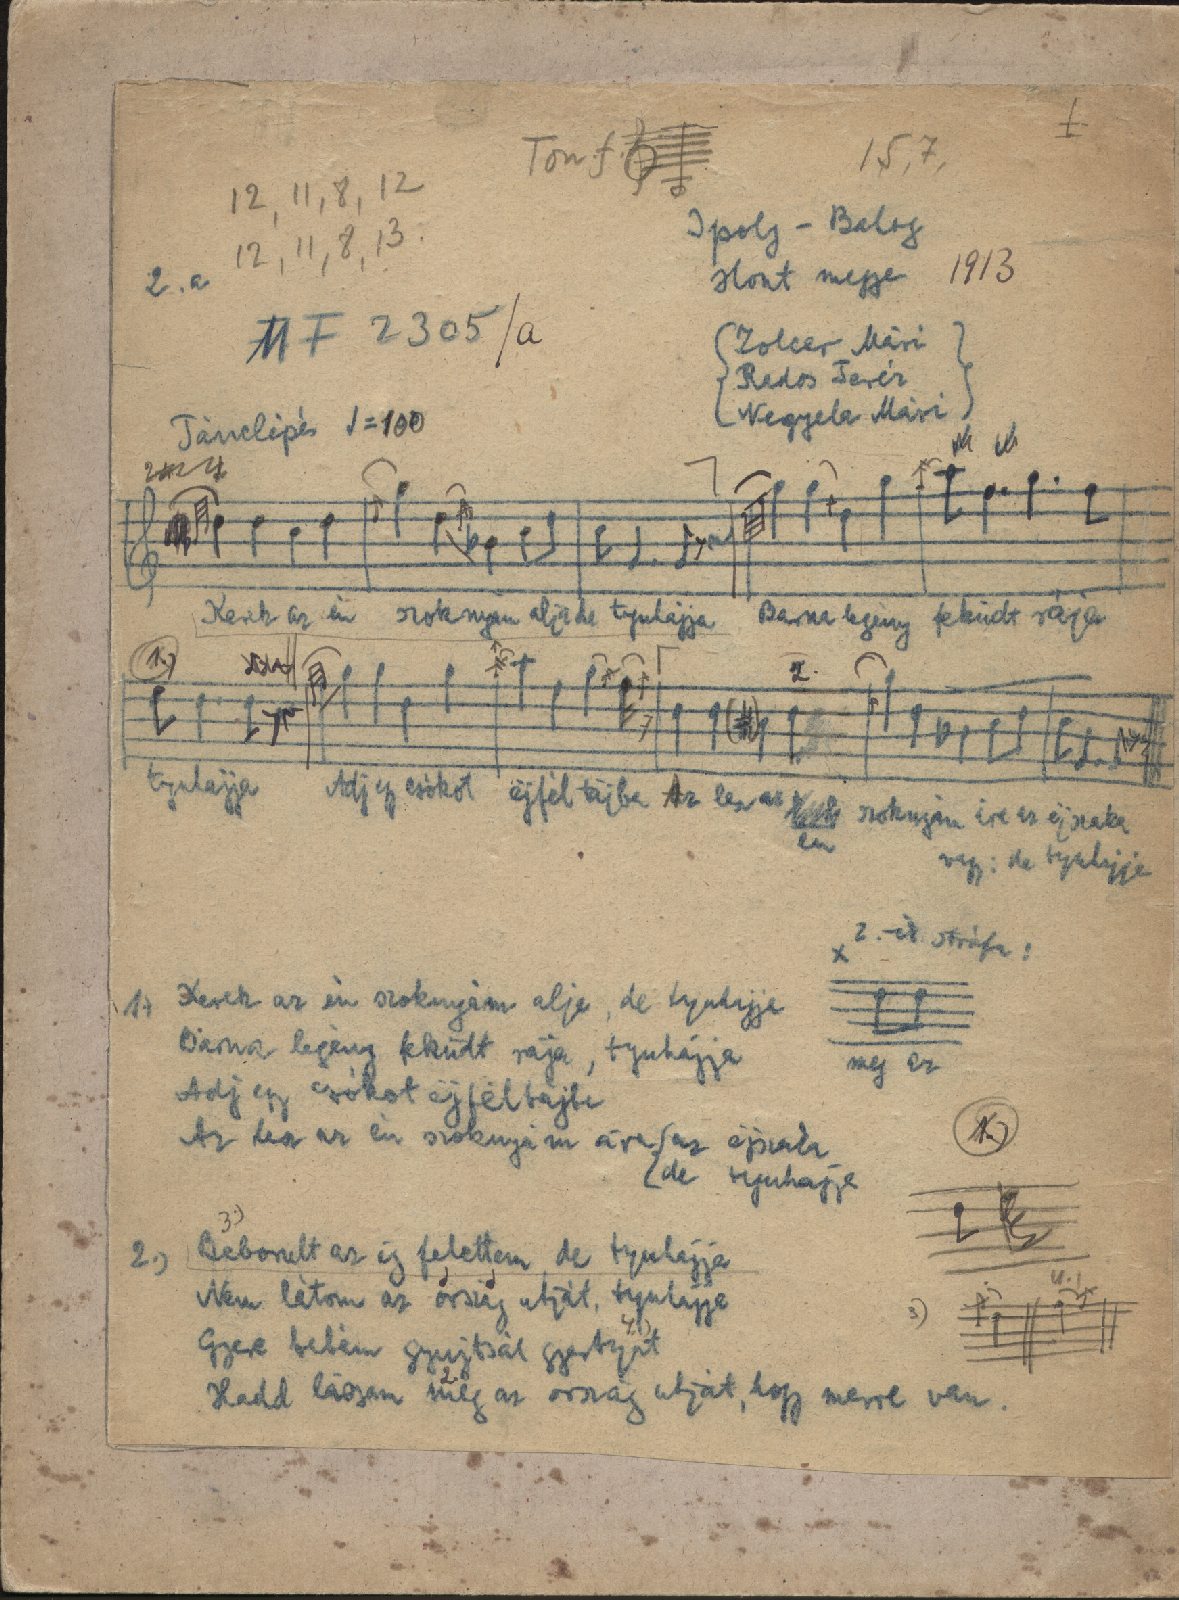 Ton. f.
15,7,
12, 11, 8, 12
12, 11, 8, 13.
2.a
Ipoly - Balog
Hont megye 1913
MF 2305/a
Zolcer Mári
Rados Teréz
Negyela Mári
Tánclépés ♩=100
Kerek az én szoknyám alja de tyuhajja Barna legény feküdt rája
1.)
2.
tyuhajja Adj egy csókot éjféltájba Az lesz az én szoknyám ára az éjszaka
vagy: de tyuhajja
x 2.-ik strófa:
meg az
1.) Kerek az én szoknyám alja, de tyuhajja
Barna legény feküdt rája, tyuhajja
Adj egy csókot éjféltájba
Az lesz az én szoknyám ára {az éjszaka
{de tyuhajja
1.)
3.)
2.) Beborult az ég felettem de tyuhajja
Nem látom az ország utját, tyuhajja
4.)
3.)
Gyere babám gyujtsál gyertyát
2.
Hadd lássam még az ország utját, hogy merre van.